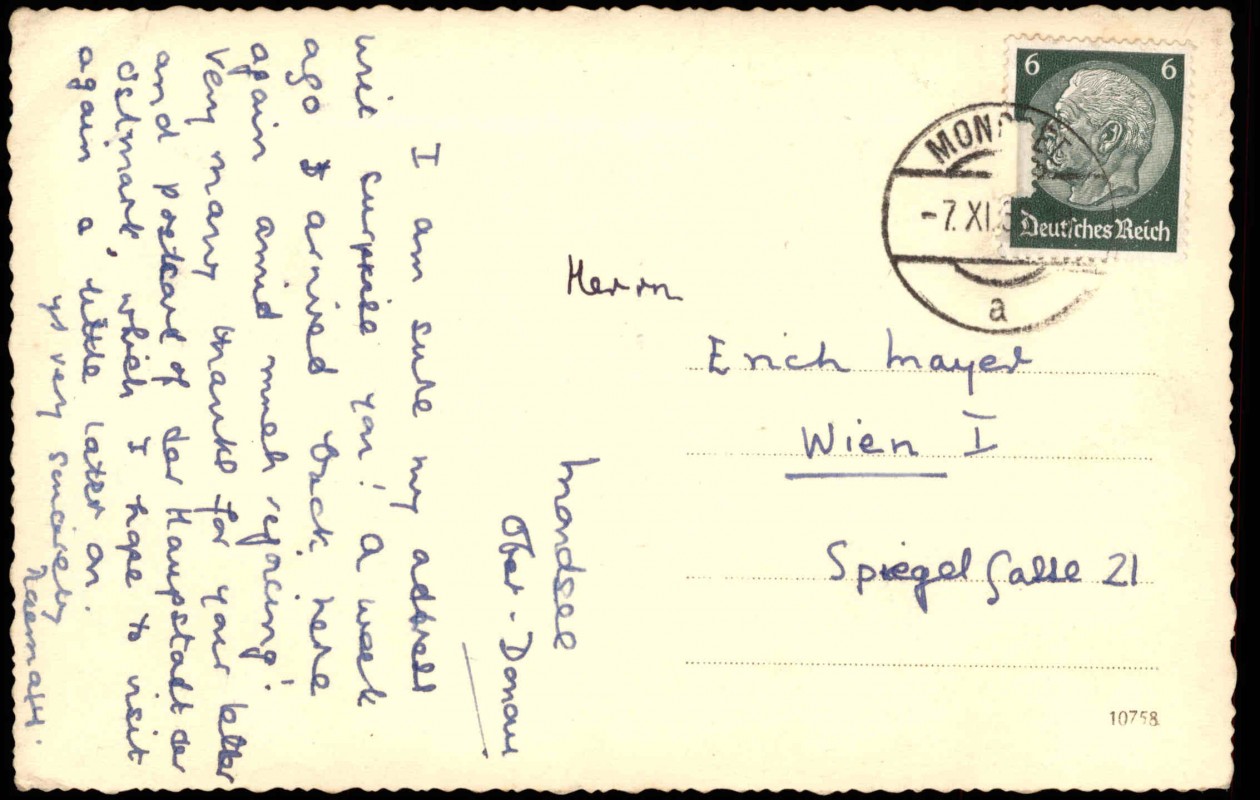 Mondsee
Ober-Donau
I am sure my adress
will surprise you! A week
ago I arrived back here
again amid much rejoicing!
Very many thanks for your letter
and postcard of der Haupstadt der
Ostmark, which I hope to visit
again a little later on.
yrs very sincerely
Herrn
Erich Mayer
Wien I
Spiegelgasse 21
6 6
Deutsches Reich
MONDSEE
-7. XI. 3
a
10758